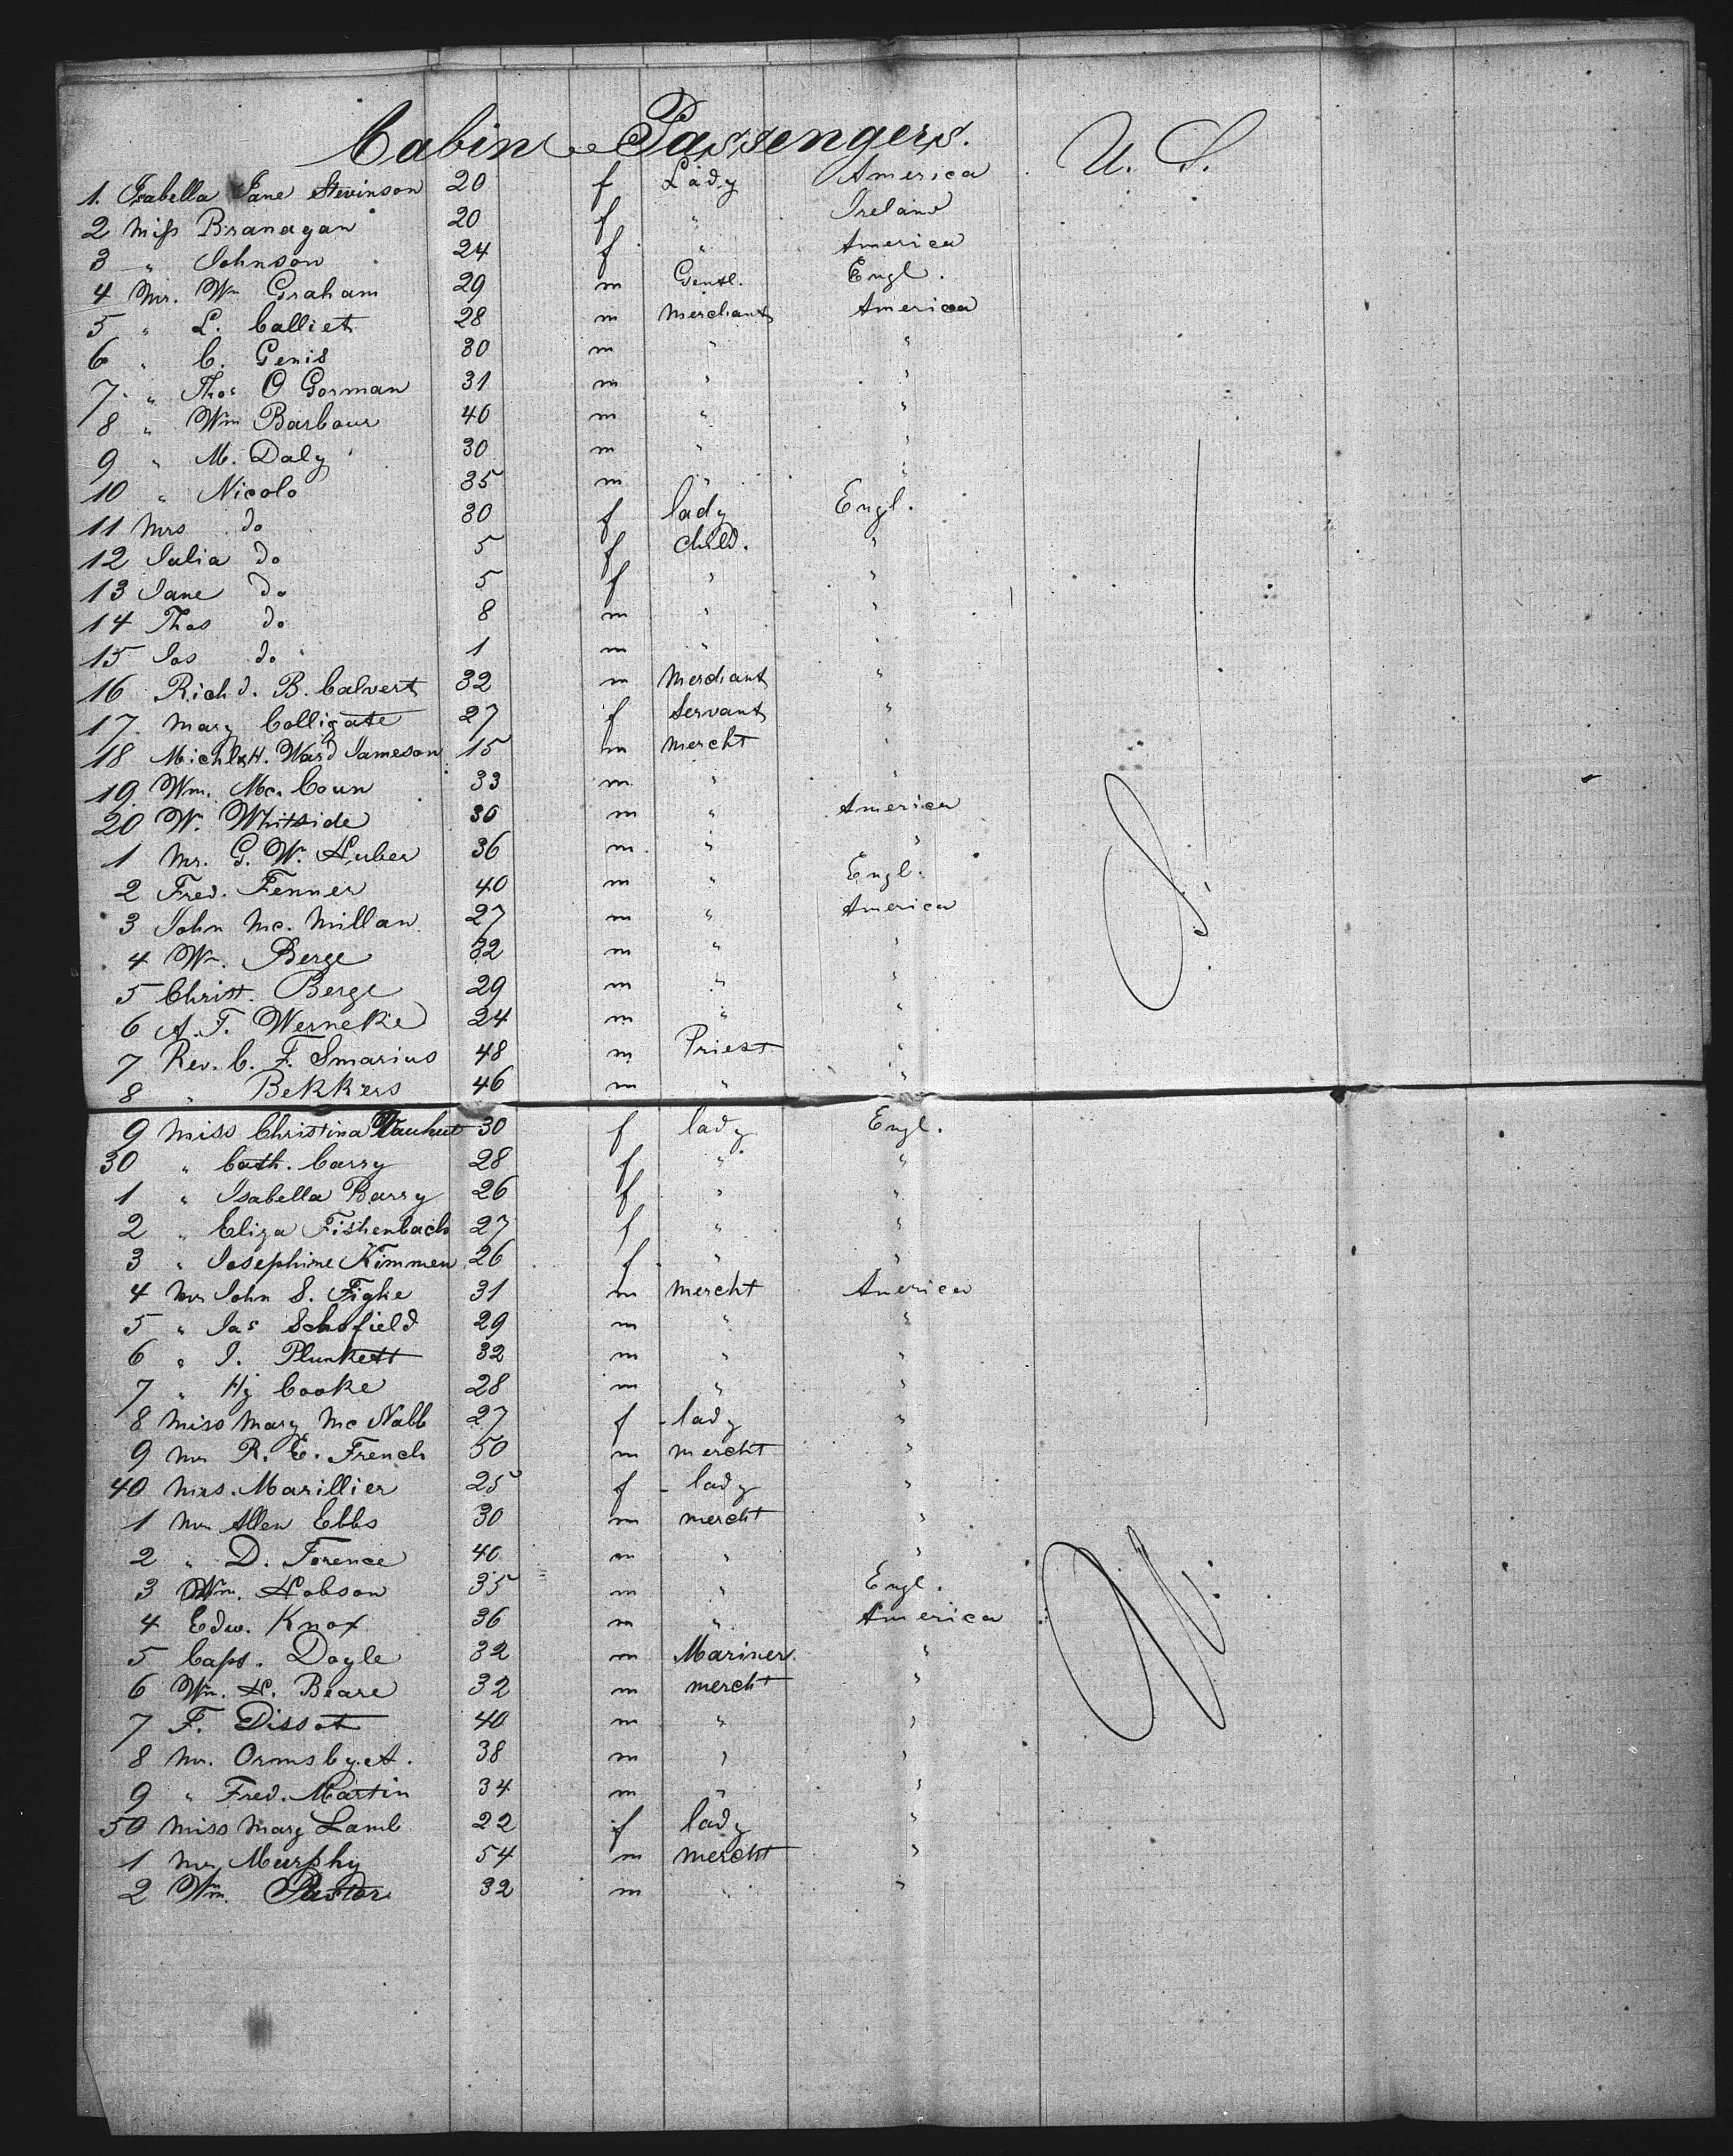 Cabin Passengers.
1. Isabella Jane Stevinson 20 f Lady America U. S.
2 Miss Branagan 20 f " Ireland
3 " Johnson 24 f " America
4 Mr. Wm Graham 29 m Gentl. Engl.
5 " L. Calliet 28 m Merchant America
6 " C. Genis 30 m " "
7 " Thos O Gorman 31 m " "
8 " Wm Barbour 40 m " "
9 " M. Daly 30 m " "
10 " Nicolo 35 m " "
11 Mrs do 30 f lady Engl.
12 Julia do 5 f child. "
13 Jane do 5 f " "
14 Thos do 8 m " "
15 Jas do 1 m " "
16 Richd. B. Calvert 32 m Merchant "
17. Mary Colligate 27 f Servant "
18 Michl H. Ward Jameson 15 m mercht "
19 Wm. Mc. Coun 33 m " "
20 W. Whitside 30 m " America
1 Mr. G. W. Huber 36 m " "
2 Fred. Fenner 40 m " Engl.
3 John Mc. Millan 27 m " America
4 Wm. Berge 32 m " "
5 Christ. Berge 29 m " "
6 A. F. Werneke 24 m " "
7 Rev. C. F. Smarius 48 m Priest "
8 " Bekkers 46 m " "
9 Miss Christina 30 f lady Engl.
30 " Cath. Carry 28 f " "
1 " Isabella Barry 26 f " "
2 " Eliza Fishenbach 27 f " "
3 " Josephine Kimmen 26 f " "
4 Mr John S. Fighe 31 m mercht America
5 " Jas Schofield 29 m " "
6 " J. Plunkett 32 m " "
7 " Hy Cooke 28 m " "
8 Miss Mary Mc Nabb 27 f lady "
9 Mr R. E. French 50 m mercht "
40 Mrs. Marillier 25 f lady "
1 Mr Allen Ebbs 30 m mercht "
2 " D. Torence 40 m " "
3 Wm. Hobson 35 m " Engl.
4 Edw. Knox 36 m " America
5 Capt. Doyle 32 m Mariner "
6 Wm. H. Beare 32 m mercht "
7 F. Dissot 40 m " "
8 Mr. Ormsby. A. 38 m " "
9 " Fred. Martin 34 m " "
50 Miss Mary Lamb 22 f lady "
1 Mr Murphy 54 m mercht "
2 Wm. Pastor 32 m " "